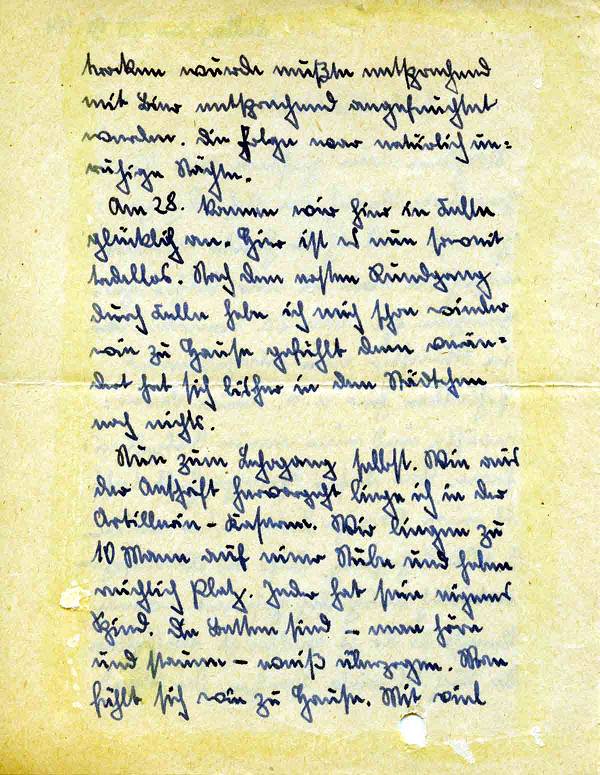 trocken wurde mußte entsprechend
mit Bier entsprechend angefeuchtet
werden. Die Folge war natürlich un=
ruhige Nächte.
Am 28. kamen wir hier in Celle
glücklich an. Hier ist es nun soweit
tadellos. Nach dem ersten Rundgang
durch Celle habe ich mich schon wieder
wie zu Hause gefühlt denn verän=
dert hat sich bisher in dem Städtchen
noch nichts.
Nun zum Lehrgang selbst. Wie aus
der Anschrift hervorgeht liege ich in der
Artillerie - Kaserne. Wir liegen zu
10 Mann auf einer Stube und haben
reichlich Platz. Jeder hat sein eigenes
Spind. Die Betten sind - man höre
und staune - weiß überzogen. Man
fühlt sich wie zu Hause. Mit viel